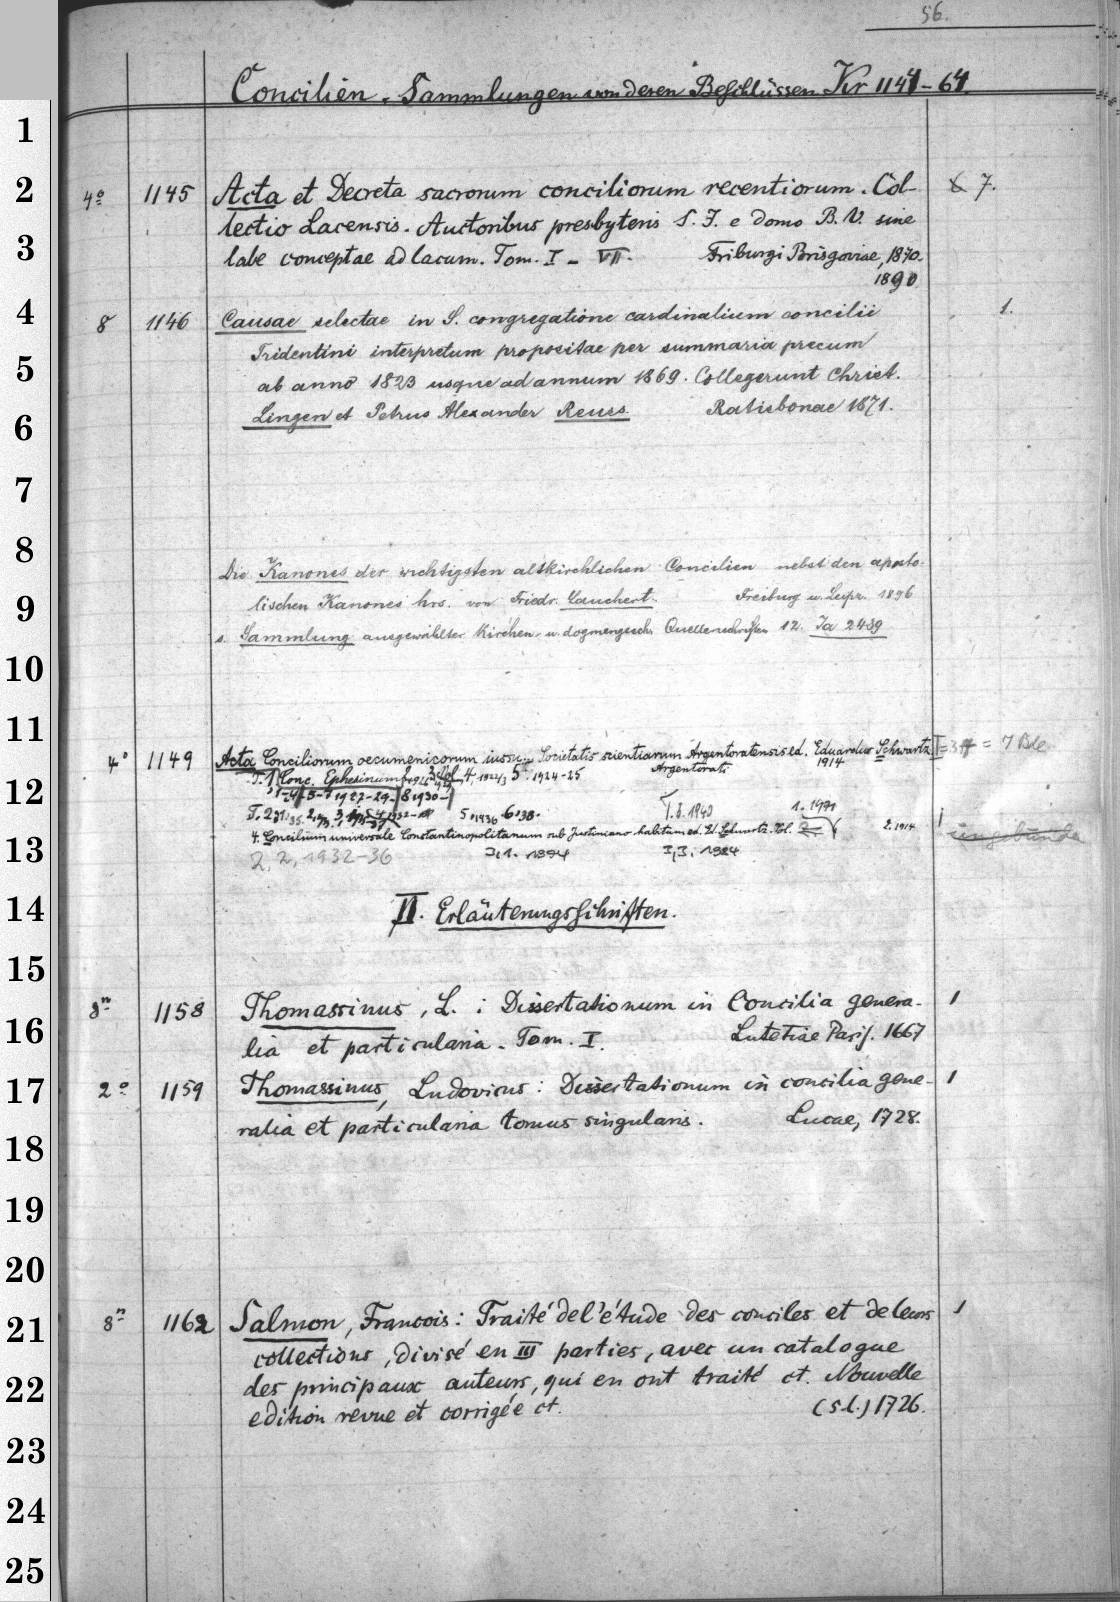 56.
Concilien. Sammlungen von deren Beschlüssen Kr 1141-64.
1
2
4º 1145 Acta et Decreta sacrorum conciliorum recentiorum. Col- 7.
lectio Lacensis. Auctoribus presbyteris S. J. e domo B. V. sine
3
labe conceptae ad lacum. Tom. I - VII. Friburgi Brisgoviae, 1870.
1890
4
8 1146 Causae selectae in S. congregatione cardinalium concilii 1.
Tridentini interpretum propositae per summaria precum
5
ab anno 1823 usque ad annum 1869. Collegerunt Christ.
6
Lingen et Petrus Alexander Reuss. Ratisbonae 1871.
7
8
Die Kanones der wichtigsten altkirchlichen Concilien nebst den aposto-
9
lischen Kanones hrs. von Friedr. Lauchert. Freiburg u. Leipz. 1896
s. Sammlung ausgewählter kirchen- u. dogmengesch. Quellenschriften 12. Ia 2489
10
11
4º 1149 Acta Conciliorum oecumenicorum iussu Societatis scientiarum Argentoratensis ed. Eduardus Schwartz = 7 Bde
Argentorati 1914
T. 1 Conc. Ephesinum 4, 5. 1924-25
12
1-4-5-7 1927-29- 8 1930-
T. 2 5, 1936 6 1938. T. 3. 1940 1. 1971
4. Concilium universale Constantinopolitanum sub Justiniano habitum ed. Ed. Schwartz. Vol. 2. 1914 ungebunde
13
2, 2, 1932-36 I, I, 1984
14
II. Erläuterungsschriften.
15
8º 1158 Thomassinus, L.: Dissertationum in Concilia genera- 1
16
lia et particularia. Tom. I. Lutetiae Paris. 1667
17
2º 1159 Thomassinus, Ludovicus: Dissertationum in concilia gene- 1
ralia et particularia tomus singularis. Lucae, 1728.
18
19
20
21
8º 1162 Salmon, Francois: Traité de l'étude des conciles et de leurs 1
collections, divisé en III parties, avec un catalogue
22
des principaux auteurs, qui en ont traité ct. Nouvelle
edition revue et corrigée ct. (s.l.) 1726.
23
24
25